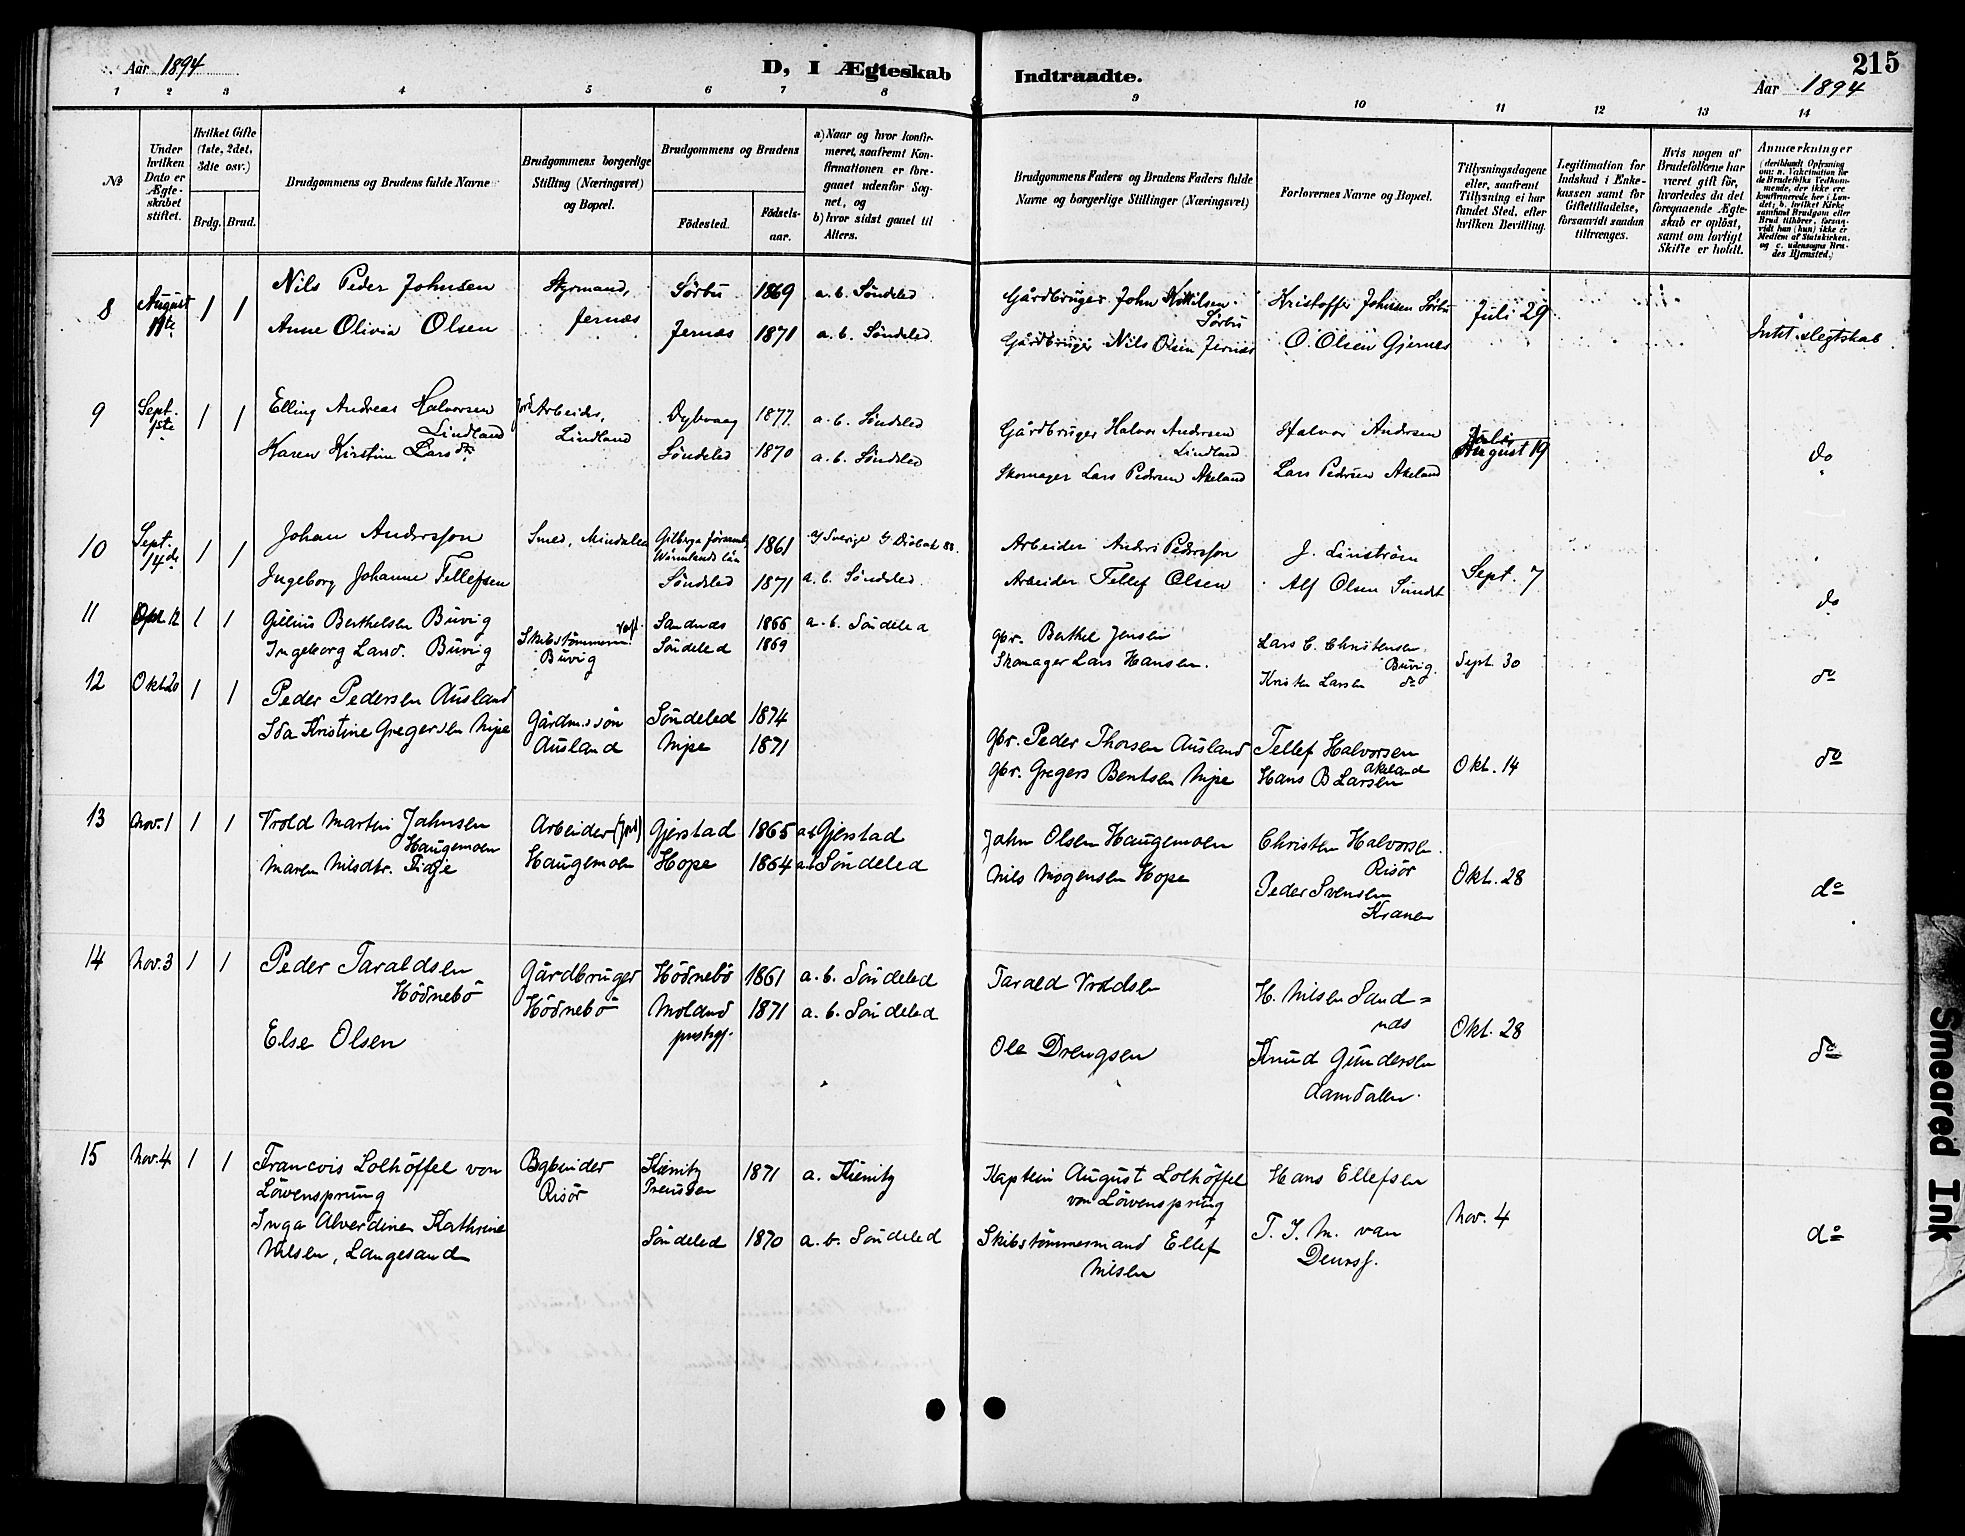 215
Aar 1894
D, I Ægteskab Indtraadte.
Aar 1894
1 2 3 4 5 6 7 8 9 10 11 12 13 14
№
Under hvilken Dato er Ægteskabet stiftet.
Hvilket Gifte (1ste, 2det, 3die osv.)
Brdg. Brud.
Brudgommens og Brudens fulde Navne
Brudgommens borgerlige Stilling (Næringsvei) og Bopæl.
Brudgommens og Brudens
Fødested.
Fødselsaar.
a) Naar og hvor konfirmeret, saafremt Konfirmationen er foregaaet udenfor Sognet, og
b) hvor sidst gaaet til Alters.
Brudgommens Faders og Brudens Faders fulde Navne og borgerlige Stillinger (Næringsvei)
Forlovernes Navne og Bopæl.
Tillysningsdagene eller, saafremt Tillysning ei har fundet Sted, efter hvilken Bevilling.
Legitimation for Indskud i Enkekassen samt for Giftetilladelse, forsaavidt saadan tiltrænges.
Hvis nogen af Brudefolkene har været gift før, hvorledes da det foregaaende Ægteskab er opløst, samt om lovligt Skifte er holdt.
Anmærkninger
(deriblandt Opførsing om: a. Vakcination for de Brudefolks Vedkommende, der ikke ere konfirmerede her i Landet; b. hvilket Kirkesamfund Brudgom eller Brud tilhører, forsaavidt han (hun) ikke er Medlem af Statskirken, og c. udensogns Brudes Hjemsted.)
8 August 11te 1 1 Nils Peder Johnsen Styrmand, Sörbu 1869 a.b. Söndeled Gårdbruger John Kittilsen Sörbu Kristoffer Johnsen Sörbu Juli 29
Anne Olivia Olsen Jernæs Jernæs 1871 a.b. Söndeled Gårdbruger Nils Olsen Jernæs O. Olsen Gjernes Intet slegtskab
9 Sept. 1ste 1 1 Elling Andreas Halvorsen Lindland Arbeider, Dybvaag 1877 a.b. Söndeled Gårdbruger Halvor Andersen Lindland Halvor Andersen August 19
Karen Kirstine Larsdtr. Lindland Söndeled 1870 a.b. Söndeled Skomager Lars Pedersen Akeland Lars Pedersen Akeland do
10 Sept. 14de 1 1 Johan Andersson Smed, Mindalen Gilberga Wärmlands län 1861 a/ Sverige b/ Arbeider Anders Pedersson J. Linström Sept. 7
Ingeborg Johanne Tellefsen Söndeled 1871 a.b. Söndeled Arbeider Tellef Olsen Alf Olsen Sundt do
11 12 1 1 Gellius Berthelsen Buvig Skibstømmerm. Sandnæs 1866 a.b. Söndeled gbr. Berthel Jensen Lars C. Christensen Buvig Sept. 30
Ingeborg Larsd. Buvig Buvig Söndeled 1869 Skomager Lars Hansen. Kristen Larsen do do
12 Okt. 20 1 1 Peder Pedersen Ausland Gårdm.s sön Söndeled 1874 gbr. Peder Thorsen Ausland Tellef Halvorsen Akeland Okt. 14
Ida Kristine Gregersen Nipe Ausland Nipe 1871 gbr. Gregers Bentsen Nipe Hans B Larsen do
13 Nov. 1 1 1 Vrold Martin Johnsen Haugemoen Arbeider (Jord) Gjerstad 1865 a.b Gjerstad John Olsen Haugemoen Christen Halvorsen Risör Okt. 28
Maren Nilsdtr. Fidje Haugemoen Hope 1864 a.b Söndeled Nils Mogensen Hope Peder Svensen Kranen do
14 Nov. 3 1 1 Peder Taraldsen Hödnebö Gårdbruger Hödnebö 1861 a.b. Söndeled Tarald Vroldsen H. Nilsen Sandnäs Okt. 28
Else Olsen Hödnebö Moland 1871 a.b. Söndeled Ole Drengsen Knud Gundersen Aamdalen. do
15 Nov. 4 1 1 Francois Lolhöffel von Löwensprung Bgbinder Risör Kienitz Preussen 1871 a. Kienitz Kaptein August Lolhöffel von Löwensprung Hans Ellefsen Nov. 4
Inga Alverdine Kathrine Nilsen, Langesand Söndeled 1870 a.b. Söndeled Skibstømmermand Ellef Nilsen T. J. M. van Deurs. do
Smeared Ink